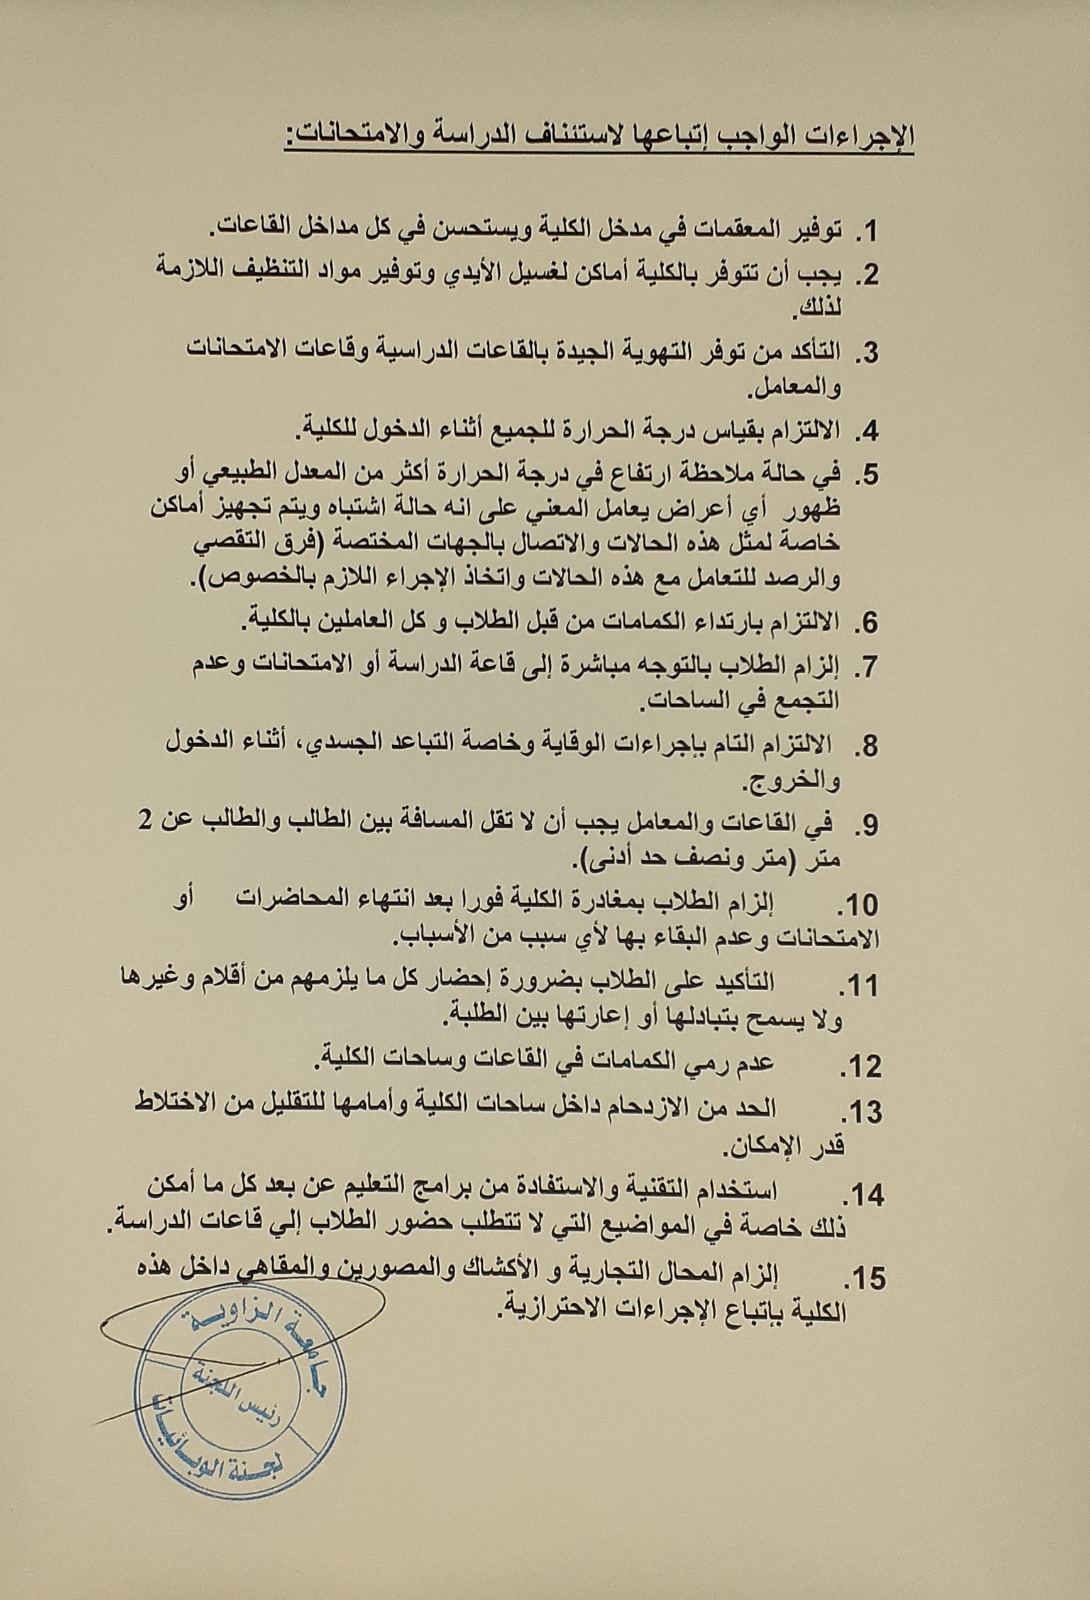 الإجراءات الواجب إتباعها لاستئناف الدراسة والامتحانات:
1. توفير المعقمات في مدخل الكلية ويستحسن في كل مداخل القاعات.
2. يجب أن تتوفر بالكلية أماكن لغسيل الأيدي وتوفير مواد التنظيف اللازمة
لذلك.
3. التأكد من توفر التهوية الجيدة بالقاعات الدراسية وقاعات الامتحانات
والمعامل.
4. الالتزام بقياس درجة الحرارة للجميع أثناء الدخول للكلية.
5. في حالة ملاحظة ارتفاع في درجة الحرارة أكثر من المعدل الطبيعي أو
ظهور أي أعراض يعامل المعني على انه حالة اشتباه ويتم تجهيز أماكن
خاصة لمثل هذه الحالات والاتصال بالجهات المختصة (فرق التقصي
والرصد للتعامل مع هذه الحالات واتخاذ الإجراء اللازم بالخصوص).
6. الالتزام بارتداء الكمامات من قبل الطلاب و كل العاملين بالكلية.
7. إلزام الطلاب بالتوجه مباشرة إلى قاعة الدراسة أو الامتحانات وعدم
التجمع في الساحات.
8. الالتزام التام بإجراءات الوقاية وخاصة التباعد الجسدي، أثناء الدخول
والخروج.
9. في القاعات والمعامل يجب أن لا تقل المسافة بين الطالب والطالب عن 2
متر (متر ونصف حد أدنى).
10. إلزام الطلاب بمغادرة الكلية فورا بعد انتهاء المحاضرات أو
الامتحانات وعدم البقاء بها لأي سبب من الأسباب.
11. التأكيد على الطلاب بضرورة إحضار كل ما يلزمهم من أقلام وغيرها
ولا يسمح بتبادلها أو إعارتها بين الطلبة.
12. عدم رمي الكمامات في القاعات وساحات الكلية.
13. الحد من الازدحام داخل ساحات الكلية وأمامها للتقليل من الاختلاط
قدر الإمكان.
14. استخدام التقنية والاستفادة من برامج التعليم عن بعد كل ما أمكن
ذلك خاصة في المواضيع التي لا تتطلب حضور الطلاب إلي قاعات الدراسة.
15. إلزام المحال التجارية و الأكشاك والمصورين والمقاهي داخل هذه
الكلية بإتباع الإجراءات الاحترازية.
جامعة الزاوية
رئيس اللجنة
لجنة الوبائيات